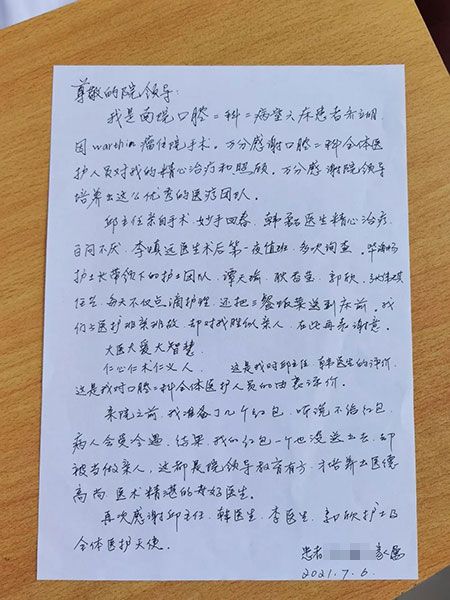 尊敬的院领导：
我是南院口腔二科二病室六床患者乔立明
因warthin瘤住院手术。万分感谢口腔二科全体医
护人员对我的精心治疗和照顾。万分感谢院领导
培养出这么优秀的医疗团队。
邱主任亲自手术，妙手回春，韩磊医生精心治疗，
百问不厌，李慎远医生术后第一夜值班，多次询查。
护士长带领下的护士团队，谭天瑜，郭欣，
任兰，每天不仅点滴护理，还把三餐饭菜送到床前，我
们与医护非亲非故，却对我胜似亲人，在此再表谢意。
大医大爱大智慧
仁心仁术仁义人 这是我对邱主任、韩医生的评价，
这是我对口腔二科全体医护人员的由衷评价。
来院之前，我准备了几个红包，听说不给红包，
病人会受冷遇，结果我的红包一个也没送出去，却
被当做亲人，这都是院领导教育有方，才培养出医德
高尚，医术精湛的专好医生。
再次感谢邱主任、韩医生、李医生、郭欣护士及
全体医护天使。
患者 家属
2021.7.6.